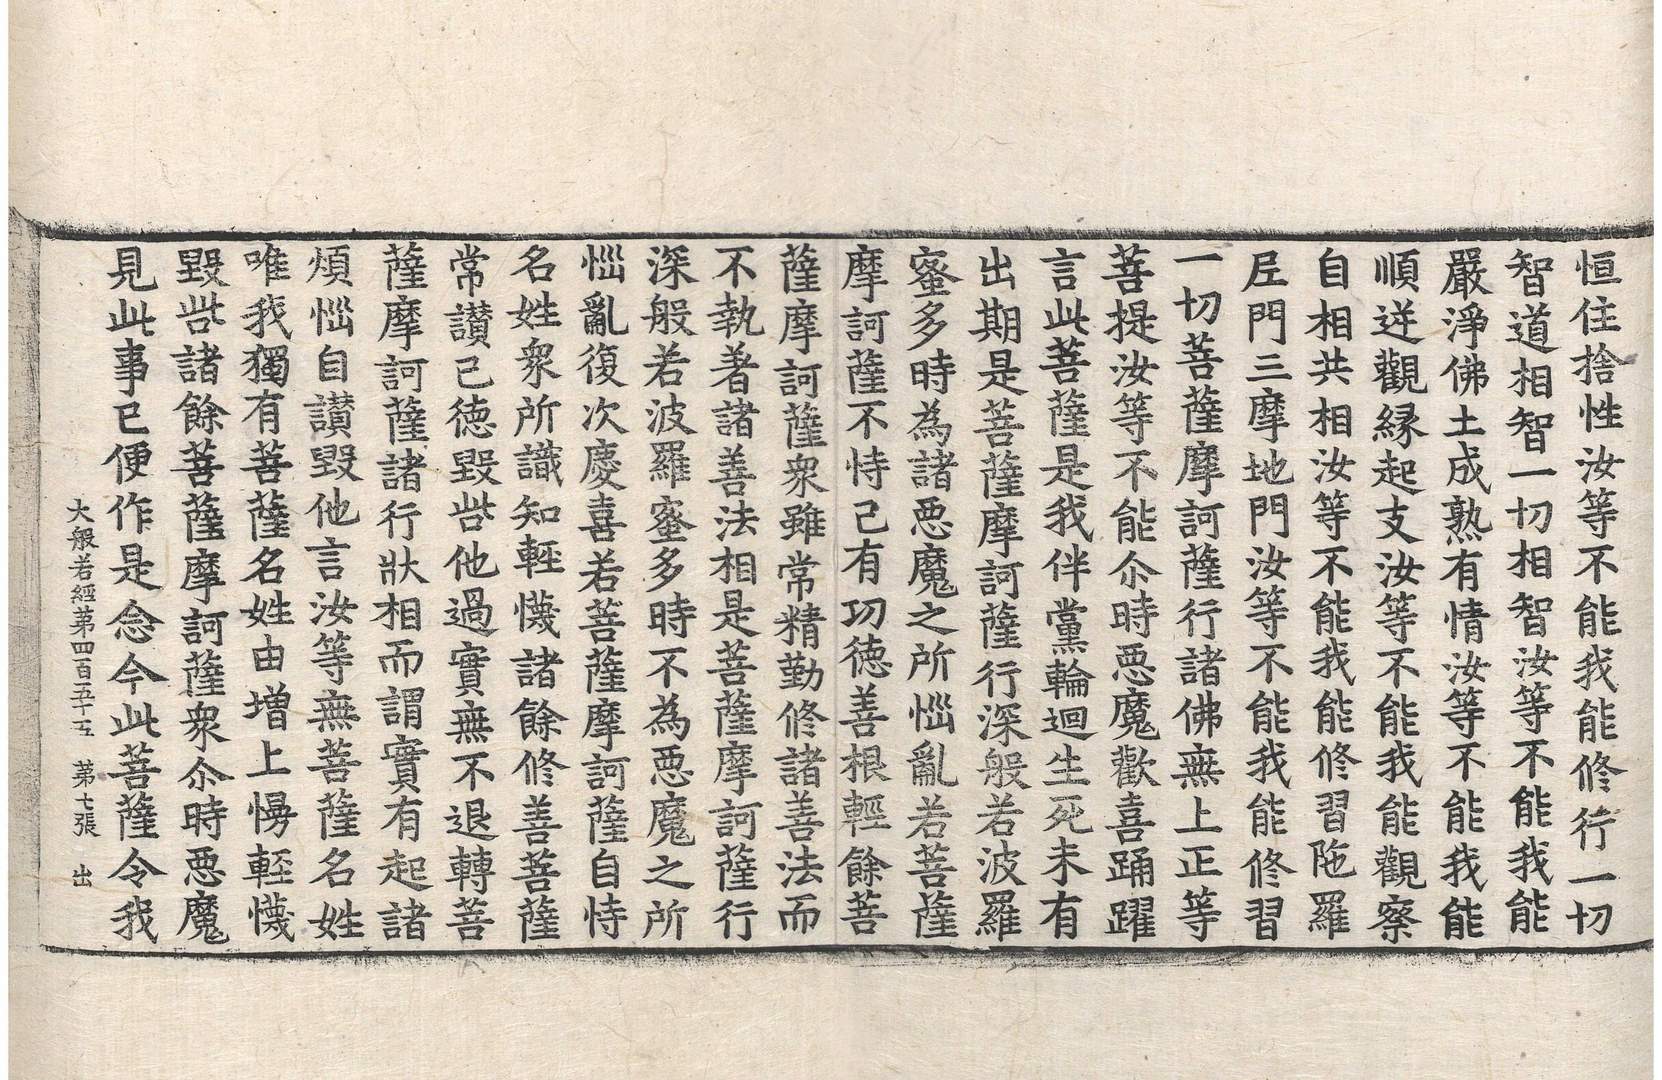 恒住捨性汝等不能我能修行一切
智道相智一切相智汝等不能我能
嚴淨佛土成熟有情汝等不能我能
順逆觀縁起支汝等不能我能觀察
自相共相汝等不能我能修習陁羅
𡰱門三摩地門汝等不能我能修習
一切菩薩摩訶薩行諸佛無上正等
菩提汝等不能尒時惡魔歡喜踊躍
言此菩薩是我伴黨輪迴生死未有
出期是菩薩摩訶薩行深般若波羅
蜜多時為諸惡魔之所惱亂若菩薩
摩訶薩不恃己有功徳善根輕餘菩
薩摩訶薩衆雖常精勤修諸善法而
不執著諸善法相是菩薩摩訶薩行
深般若波羅蜜多時不為惡魔之所
惱亂復次慶喜若菩薩摩訶薩自恃
名姓衆所識知輕懱諸餘修善菩薩
常讃己徳毀呰他過實無不退轉菩
薩摩訶薩諸行狀相而謂實有起諸
煩惱自讃毀他言汝等無菩薩名姓
唯我獨有菩薩名姓由增上慢輕懱
毀呰諸餘菩薩摩訶薩衆尒時惡魔
見此事已便作是念今此菩薩令我
大般若經第四百五十五 第七張 出